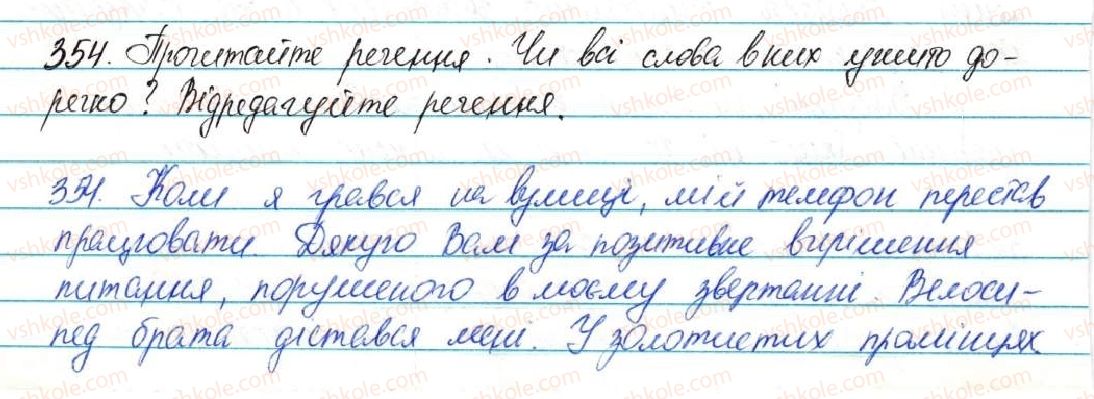 354. Прочитайте речення. Чи всі слова в них ужито до-
речно? Відредагуйте речення.
354. Коли я грався на вулиці, мій телефон перестав
працювати. Дякую Вам за позитивне вирішення
питання, порушеного в моєму звертанні. Велоси-
пед брата дістався мені. У золотистих промінцях